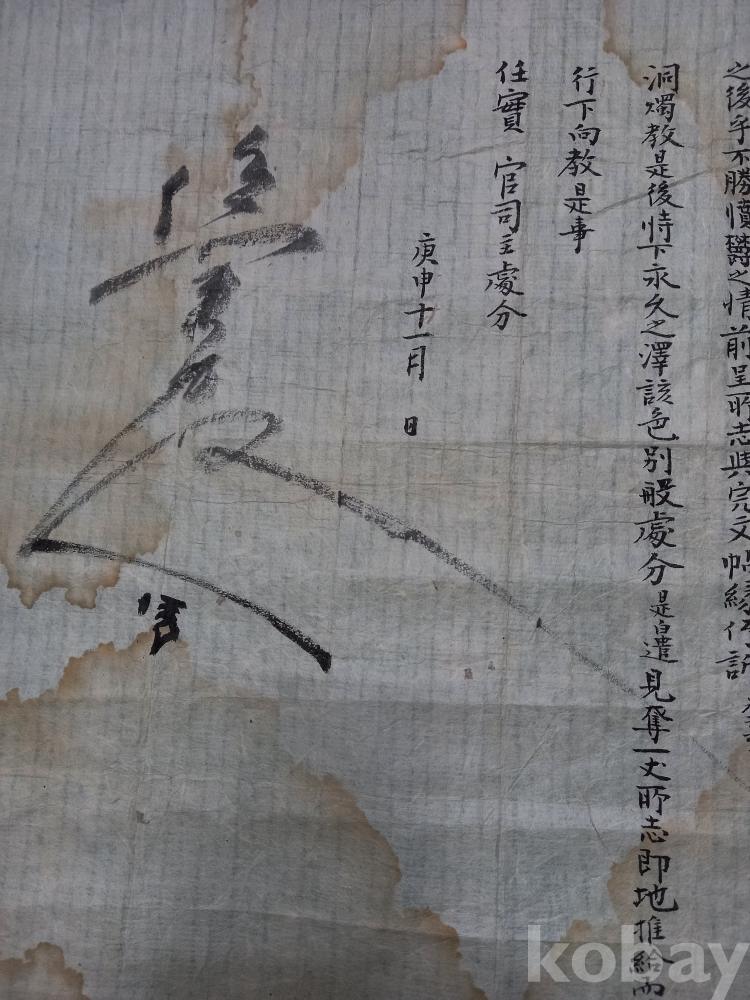 之後乎不勝憤鬱之情前呈所志與完文
洞燭教是後特下永久之澤該色別般處分是白遣見奪一丈所志即地推給
行下向教是事
任實 官司主處分
庚申十一月 日
kobay